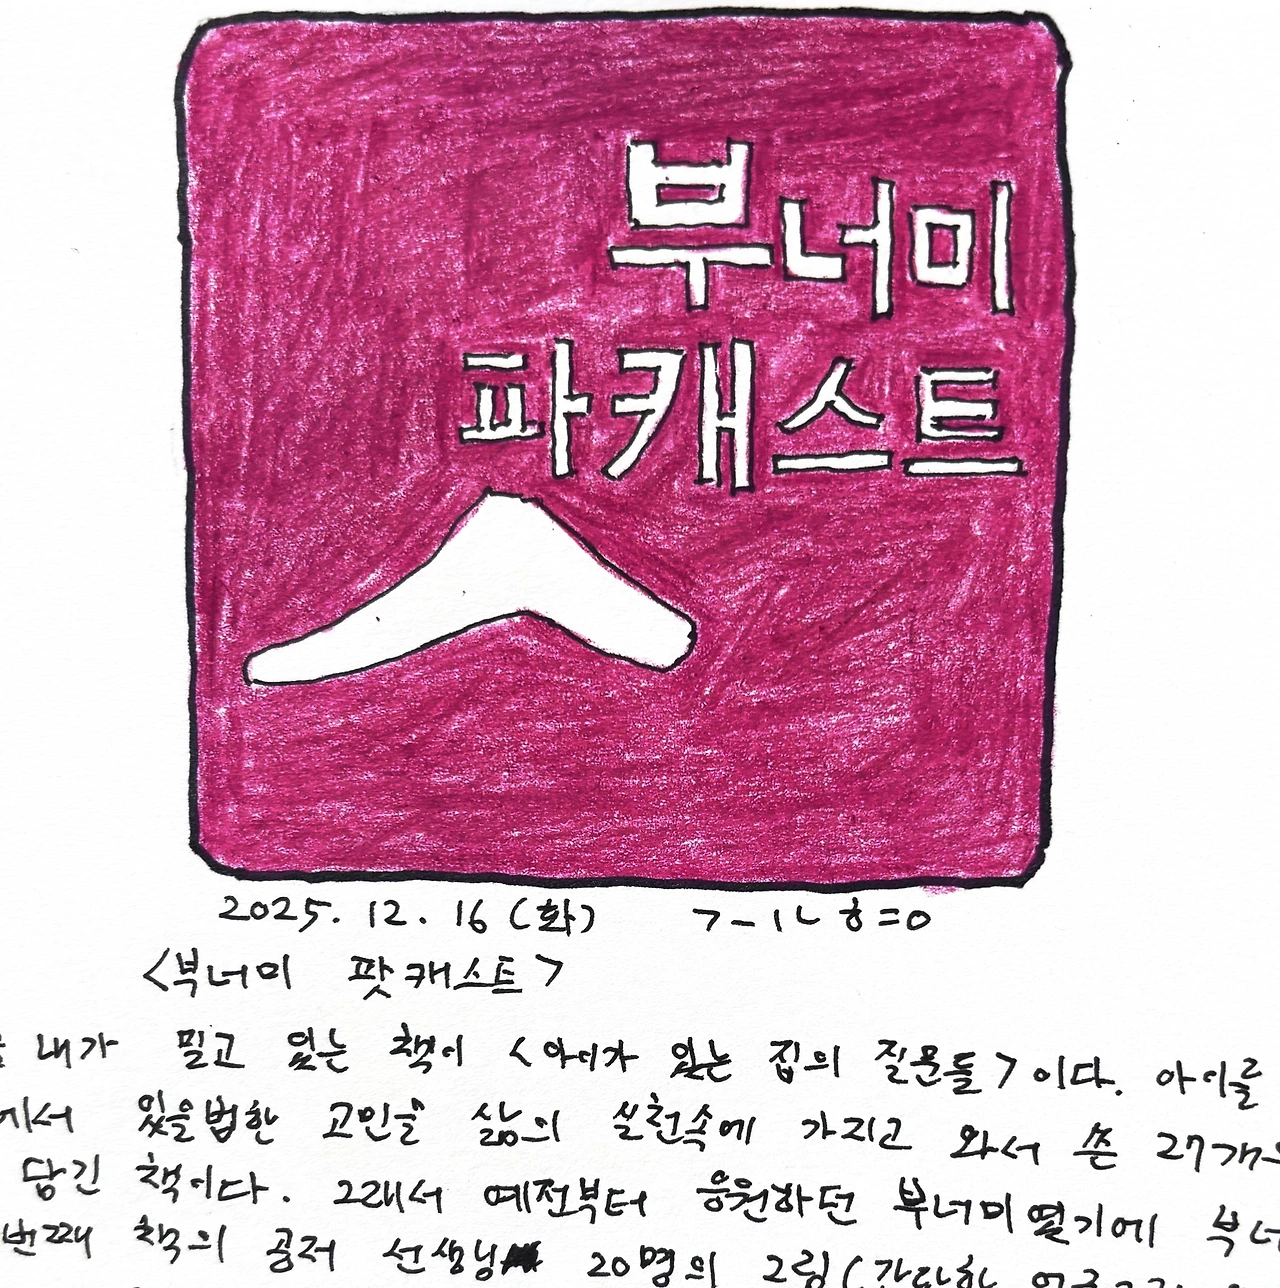 부너미
파캐스트
2025. 12. 16 (화) ㄱㅡㅣㄴㅎ=ㅇ
<부너미 팟캐스트>
내가 밀고 있는 책이 <아이가 있는 집의 질문들>이다. 아이를
에서 있을법한 고민을 삶의 실천속에 가지고 와서 쓴 27개의
담긴 책이다. 그래서 예전부터 응원하던 부너미 열기에 부너
번째 책의 공저 선생님 20명의 그림(간단한